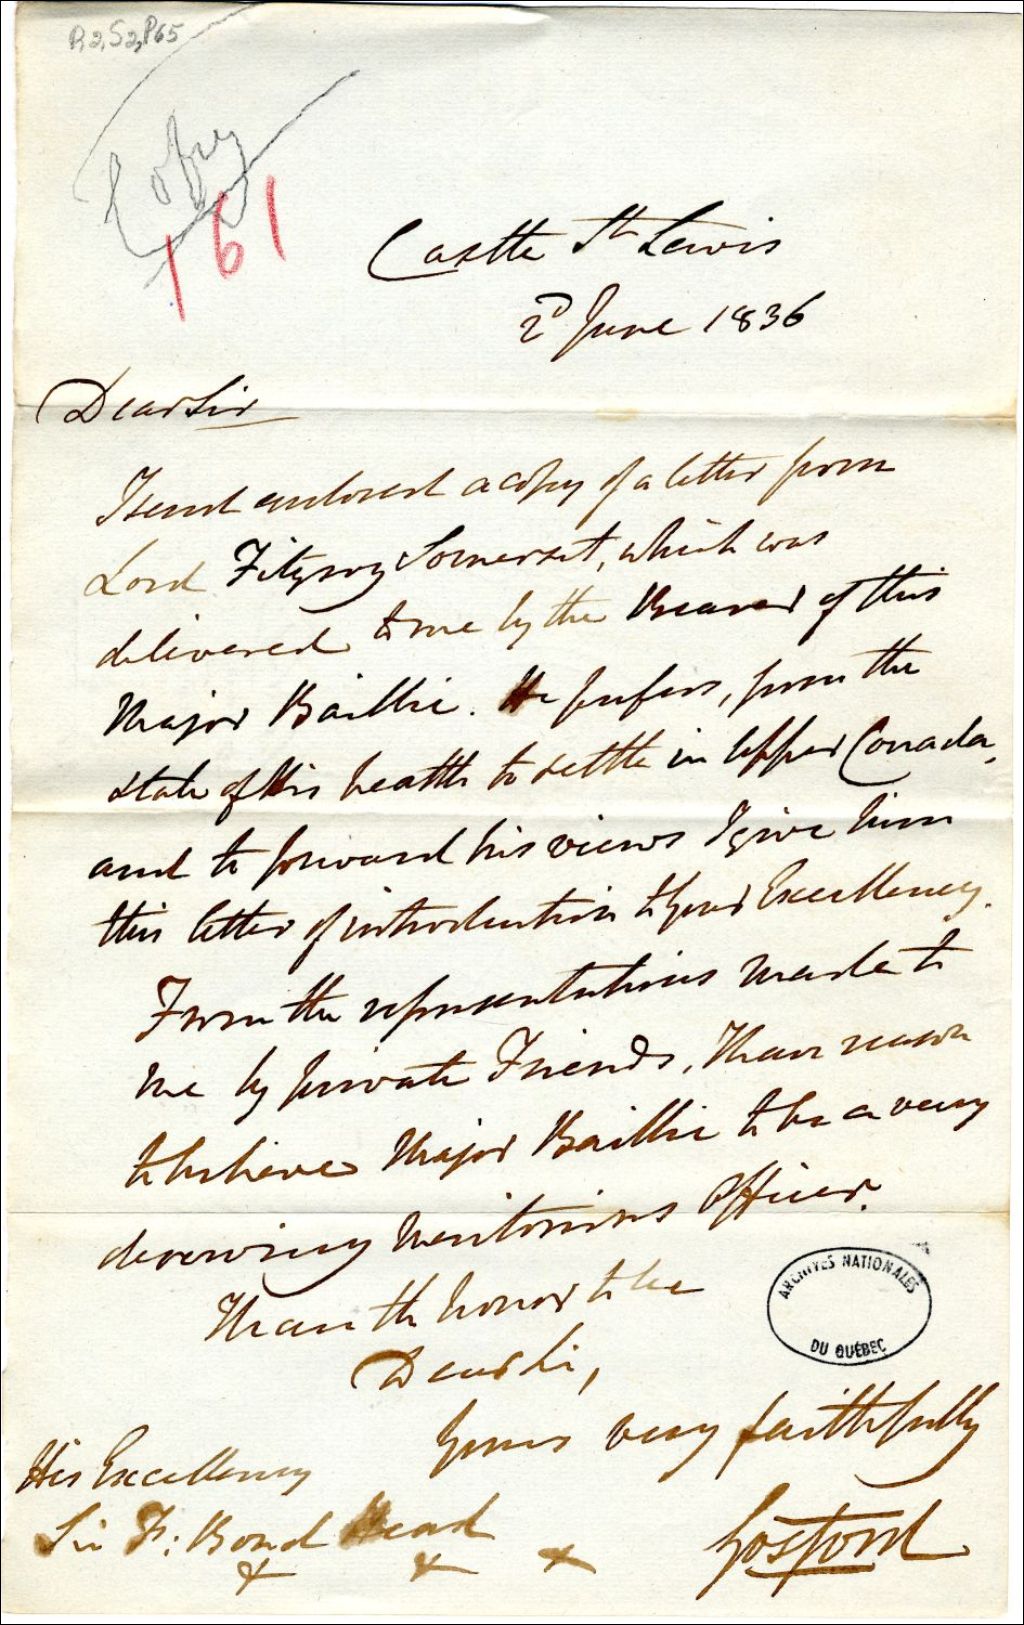 P2,S2,P65
Copy
161
Castle St Lewis
2D June 1836
Dear Sir
I send enclosed a copy of a letter from
Lord Fitzroy Somerset, which was
delivered to me by the Bearer of this
Major Baillie. He prefers, from the
state of his health to settle in Upper Canada,
and to forward his views I give him
this letter of introduction to your Excellency.
From the representations made to
me by private Friends, I have reason
to believe Major Baillie to be a very
deserving meritorious Officer.
I have the honor to be
Dear Sir,
Yours very faithfully
Gosford
His Excellency
Sir F: Bond Head
ARCHIVES NATIONALES
DU QUÉBEC